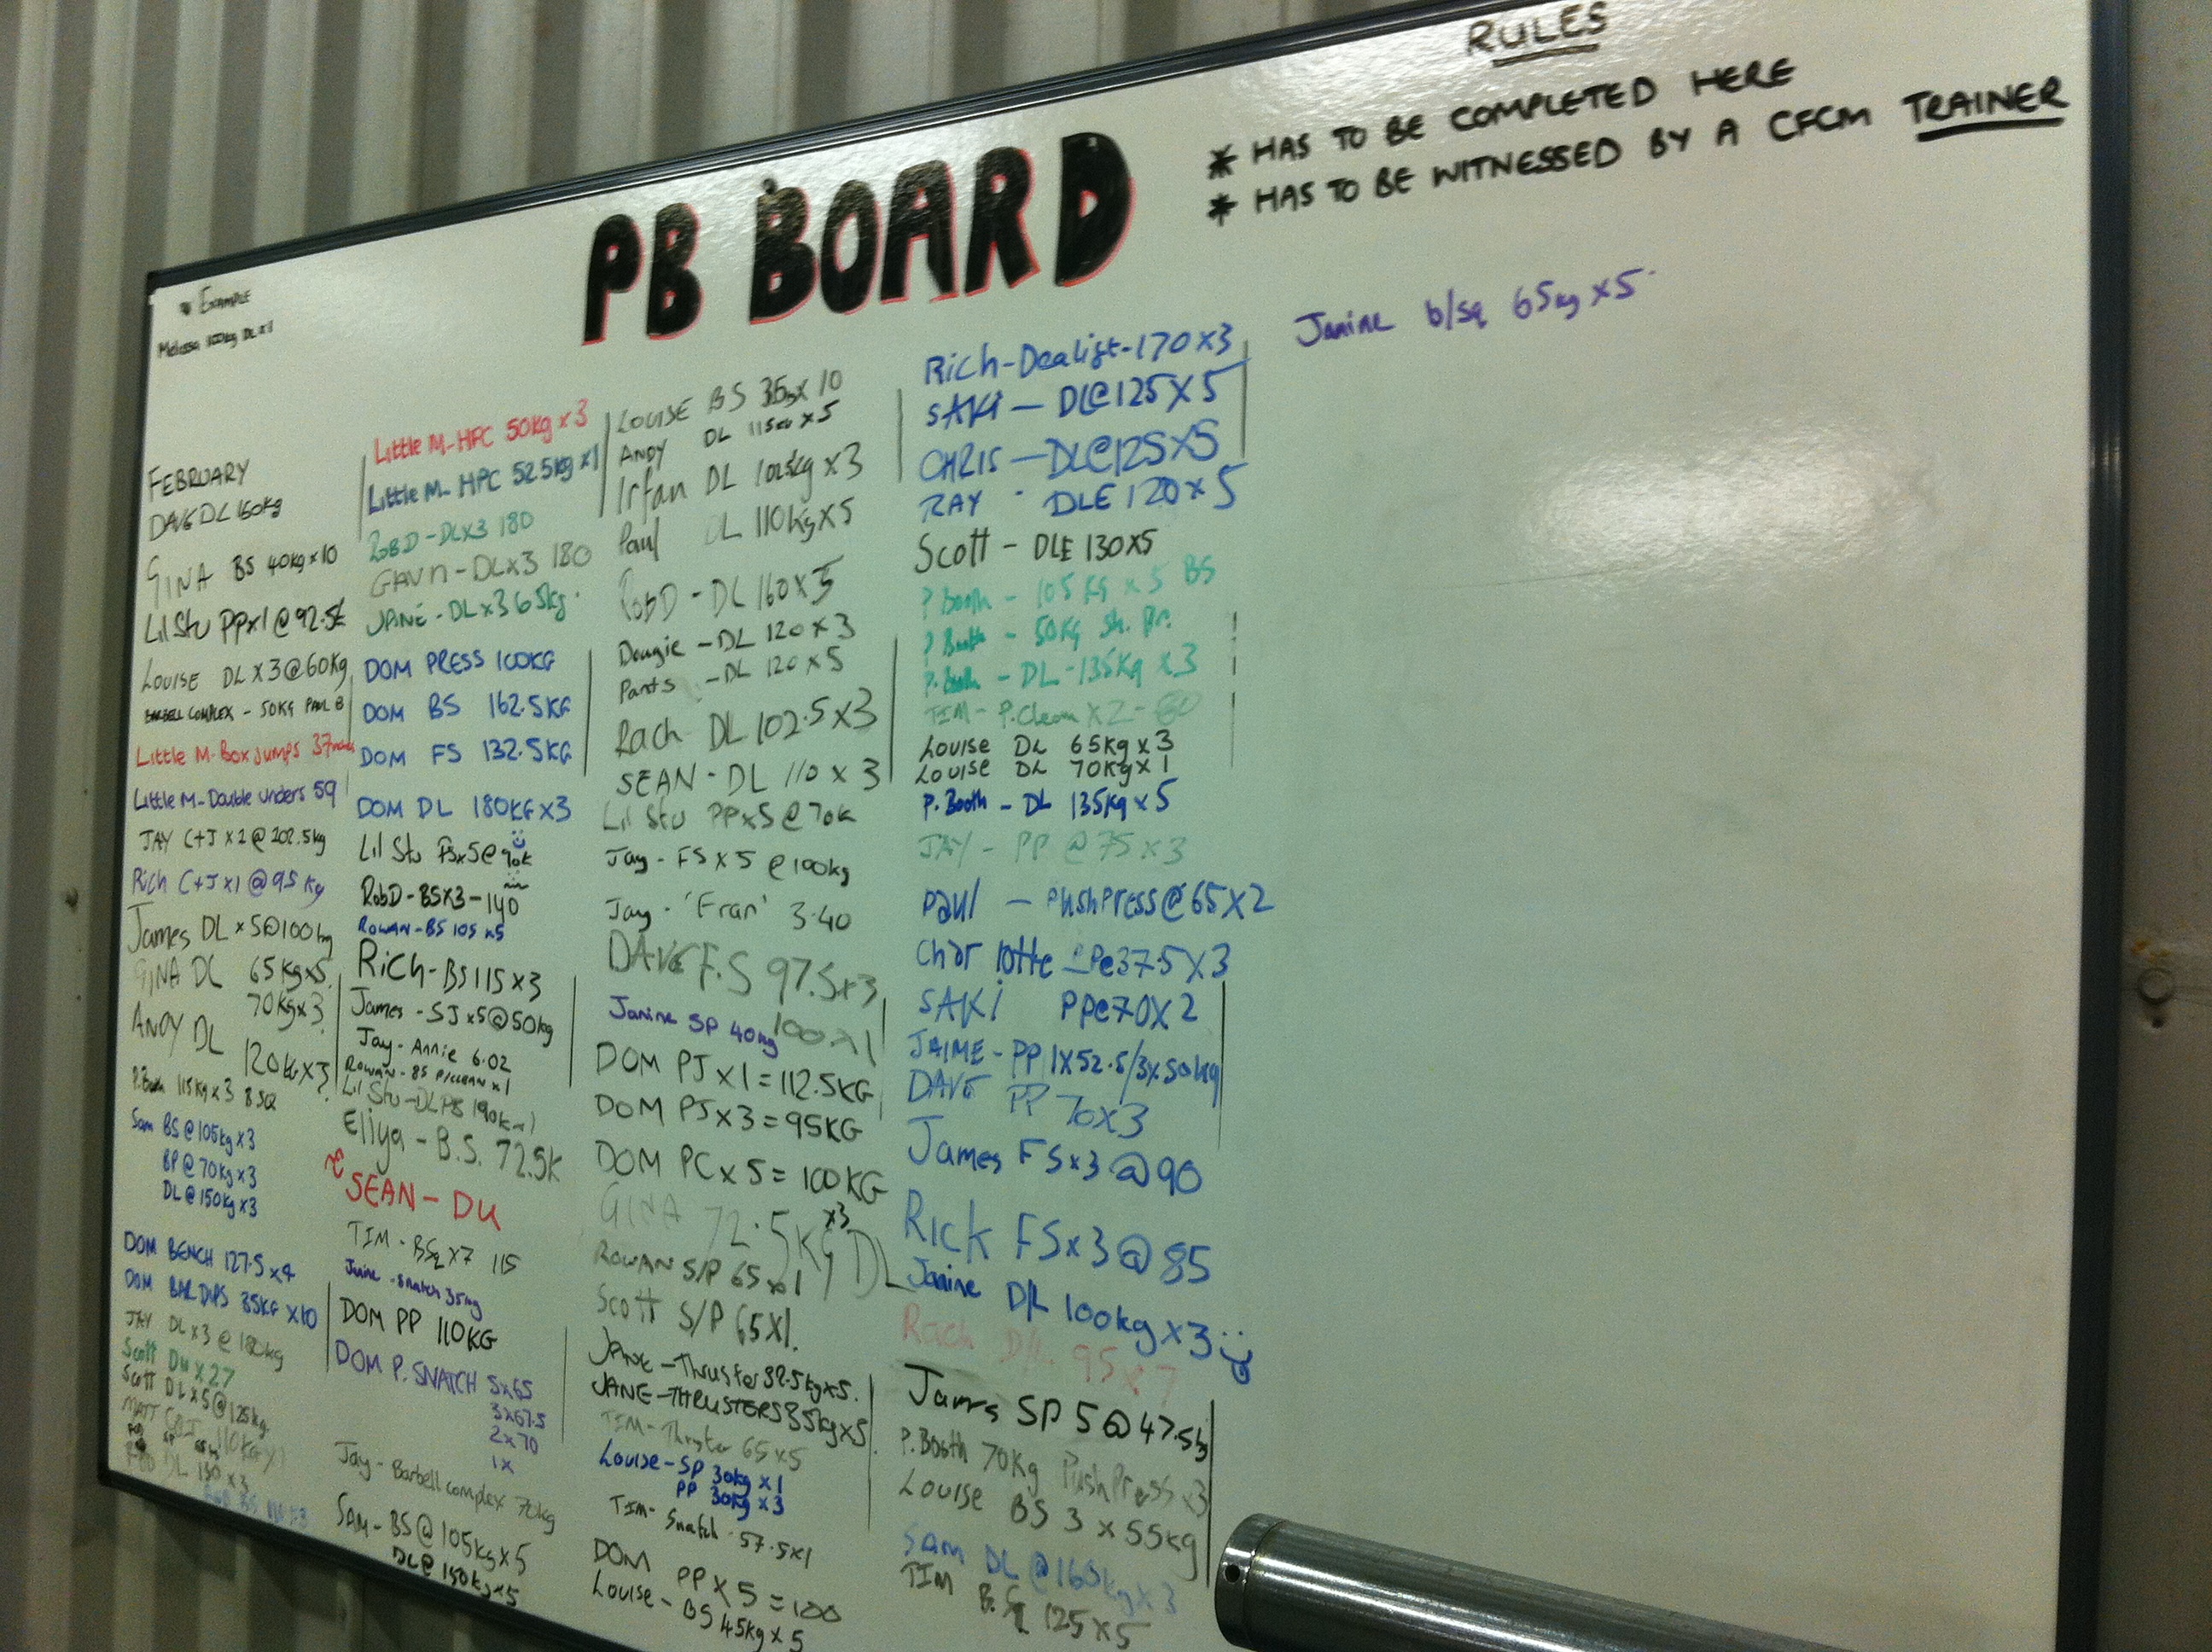 RULES
* HAS TO BE COMPLETED HERE
* HAS TO BE WITNESSED BY A CFCM TRAINER
PB BOARD
EXAMPLE
Melissa DL x1
FEBRUARY
DAVE DL 160kg
GINA BS 40kg x 10
Lil Stu PPx1 @ 92.5k
LOUISE DL X 3 @ 60kg
BARBELL COMPLEX - 50KG PAUL B
Little M-Box Jumps 37inches
Little M-Double Unders 59
JAY C+J x 2 @ 202.5kg
Rich C+J x1 @ 95 kg
James DL x 5@100kg
GINA DL 65kgx5
70kgx3
ANDY DL
120kgx3
P.Booth 115kg x 3 BSQ
Sam BS @ 105kg x 3
BP @ 70kg x 3
DL @ 150kg x 3
DOM BENCH 127.5 x 4
DOM BAR DIPS 35KG x10
JAY DL x 3 @ 180kg
Scott DU x 27
Scott DL x 5 @ 125kg
MATT C+J 110KG x1
DL 130 x 3
Little M-HPC 50kg x 3
Little M- HPC 52.5kg x1
RobD-DLx3 180
GAVN-DLx3 180
JANE-DL x 3 65kg.
DOM PRESS 100KG
DOM BS 162.5KG
DOM FS 132.5KG
DOM DL 180KG x3
Lil Stu FSx5@90k
RobD-BSx3-140
ROWAN-BS 105 x5
Rich-BS115x3
James-SJx5@50kg
Jay-Annie 6.02
ROWAN-85 P/CLEAN x1
Lil Stu-DLPB 190k x1
Eliya-B.S. 72.5K
SEAN-DU
TIM-BSqx7 115
Janine-snatch 35kg
DOM PP 110KG
DOM P.SNATCH 5x65
3x67.5
2x70
1x
Jay-Barbell complex 70kg
SAM-BS@105kgx5
DL@150kgx5
LOUISE BS 35kg x 10
ANDY DL 115kg x5
Irfan DL 102.5kg x 3
Paul DL 110kg x 5
RobD-DL 160 x 5
Dougie-DL 120 x 3
Pants-DL 120 x 5
Rach DL 102.5x3
SEAN-DL 110 x 3
Lil Stu PPx5@70k
Jay-FS x 5 @100kg
Jay-'Fran' 3.40
DAVE F.S 97.5x3
100x1
Janine SP 40kg
DOM PJ x 1 = 112.5KG
DOM PJ x 3 = 95KG
DOM PC x 5 = 100KG
GINA 72.5kg DL x3
ROWAN S/P 65x1
Scott S/P 65x1.
JANE-Thruster 32.5kgx5.
JANE-THRUSTERS 35kgx5
TIM-Thruster 65x5
Louise-SP 30kg x 1
PP 30kg x 3
TIM-Snatch-57.5x1
DOM PP x 5 = 100
Louise-BS 45kg x 5
Rich-Dealift-170x3
SAKi-DL@125x5
CHRIS-DL@125x5
RAY-DL@120x5
Scott-DL@130x5
P Booth-105 kg x 5 BS
P Booth-50kg Sh. Pr.
P. Booth-DL-135kg x 3
TIM-P.Clean x2-80
Louise DL 65kg x 3
Louise DL 70kg x 1
P. Booth-DL 135kg x 5
JAY-PP @ 75 x 3
Paul-PushPress@65x2
Charlotte-PP@37.5x3
SAKi PP@70x2
JAIME-PP 1x52.5/3x50kg
DAVE PP 70x3
James FSx3@90
Rick FSx3@85
Janine D/L 100kgx3
Rach D/L 95x7
James SP 5@47.5kg
P.Booth 70kg PushPress x3
Louise BS 3 x 55kg
SAM DL @160kg x 3
TIM B.Sq 125x5
Janine b/sq 65kg x5